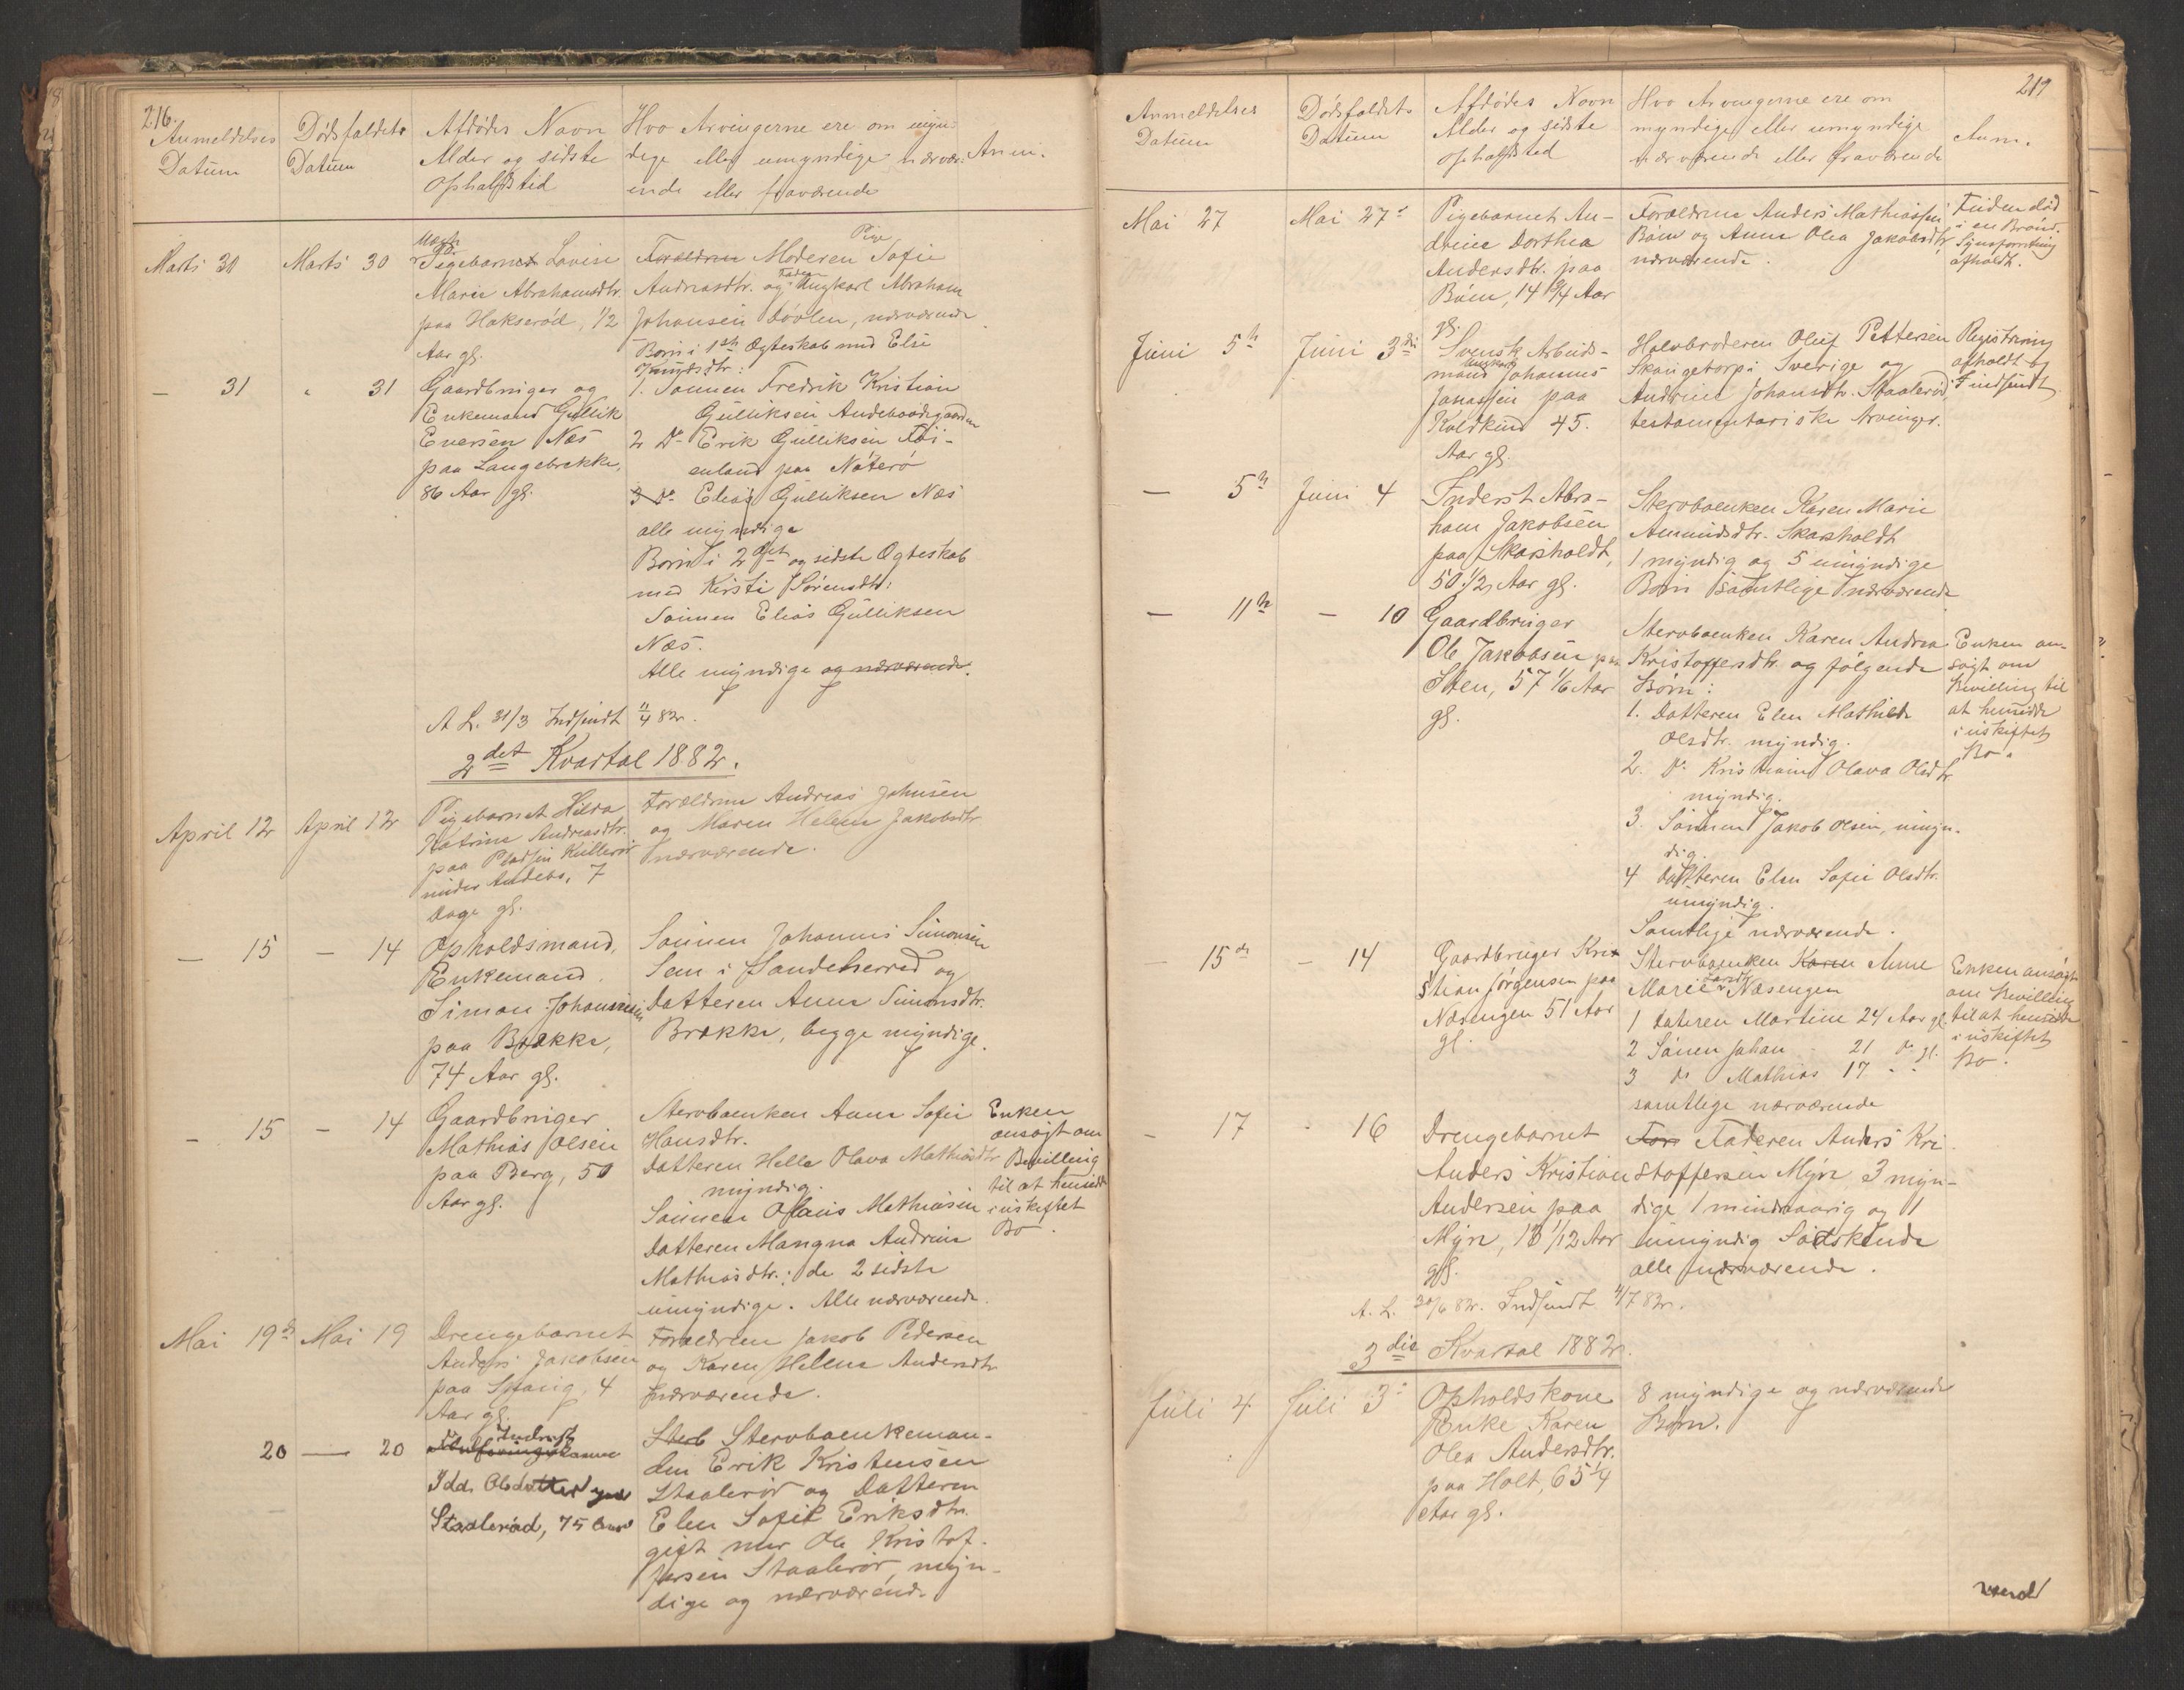 216.
Anmeldelses Datum
Dødsfaldets Datum
Afdødes Navn
Alder og sidste
Opholdsted
Hvo Arvingerne ere om myn-
dige eller umyndige nærvær-
ende eller fraværende
Anm.
Marts 30
Marts 30
Uægte
Pigebarnet Lovise
Marie Abrahamsdtr.
paa Hakserød, 1/2
Aar gl.
Pige
Forældrene Moderen Sofie
Andreasdtr. og Faderen Ungkarl Abraham
Johansen Døvlen, nærværende
— 31
" 31
Gaardbruger og
Enkemand Gullik
Eversen Næs
paa Langebrekke,
86 Aar gl.
Børn i 1ste Ægteskab med Else
1. Sønnen Fredrik Kristian
Gulliksen Andebo
2 Do Erik Gulliksen Føi-
enland paa Nøterø
3 Do Elias Gulliksen Næs
alle myndige
Børn i 2det og sidste Ægteskab
med Kirsti Sørensdtr:
Sønnen Elias Gulliksen
Næs.
Alle myndige og nærværende.
A L. 31/3 Indsendt 11/4 82.
2det Kvartal 1882.
April 12
April 12
Pigebarnet Hilda
Katrine Andreasdtr.
paa Pladsen Kullerød
under Andebo, 7
Dage gl.
Forældrene Andreas Johnsen
og Maren Helene Jakobsdtr
nærværende.
— 15
— 14
Opholdsmand,
Enkemand
Simon Johannesen
paa Brække,
74 Aar gl.
Sønnen Johannes Simonsen
Sem i Sandeherred og
Datteren Anne Simonsdtr.
Brække, begge myndige.
— 15
— 14
Gaardbruger
Mathias Olsen
paa Berg, 50
Aar gl.
Stervboenken Anne Sofie
Hansdtr.
Datteren Helle Olava Mathiasdtr
myndig.
Sønnen Olaus Mathiasen
Datteren Mangna Andrine
Mathiasdtr.; de 2 sidste
umyndige. Alle nærværende.
Enken
ansøgt om
Bevilling
til at hensidde
i uskiftet
Bo.
Mai 19de
Mai 19
Drengebarnet
Anders Jakobsen
paa Spaug, 4
Aar gl.
Forældrene Jakob Pedersen
og Karen Helene Andersdtr
nærværende.
20
— 20
Inderst
Idde Olsdatter paa
Staalerød, 75 Aar
Sterb Stervboenkeman-
den Erik Kristensen
Staalerød og Datteren
Elen Sofie Eriksdtr.
gift med Ole Kristof-
fersen Staalerød, myn-
dige og nærværende
219
Anmeldelses
Datum
Dødsfaldets
Datum
Afdødes Navn
Alder og sidste
Opholdsted
Hvo Arvingerne ere om
myndige eller umyndige
nærværende eller fraværende
Anm.
Mai 27
Mai 27de
Pigebarnet An-
drine Dorthea
Andersdtr. paa
Bøen, 14 3/4 Aar
gl.
Forældrene Anders Mathiassen
Bøen og Anne Olea Jakobsdtr
nærværende.
Funden død
i en Brønd.
Synsforretning
afholdt.
Juni 5te
Juni 3die
Svensk Arbeids-
mand Ungkarl Johannes
Jonassen paa
Koldkind 45.
Aar gl.
Halvbroderen Oluf Pettersen
Skaugetorp i Sverige og
Andrine Johansdtr. Staalerød,
testamentariske Arvinger.
Registrering
afholdt og
indsendt
— 5te
Juni 4
Inderst Abra-
ham Jakobsen
paa Skarsholdt,
50 1/2 Aar gl.
Stervboenken Karen Marie
Amundsdtr. Skarsholdt
1 myndig og 5 umyndige
Børn samtlige nærværende
— 11te
— 10
Gaardbruger
Ole Jakobsen paa
Sten, 57 1/6 Aar
gl.
Stervboenken Karen Andrea
Kristoffersdtr. og følgende
Børn:
1. Datteren Elen Mathilde
Olsdtr. myndig.
2. Do Kristiane Olava Olsdtr
myndig.
3. Sønnen Jakob Olsen, umyn-
dig.
4 Datteren Elen Sofie Olsdtr.
umyndig.
Samtlige nærværende.
Enken an-
søgt om
Bevilling til
at hensidde
i uskiftet
Bo.
— 15de
— 14
Gaardbruger Kri-
stian Jørgensen paa
Næsengen 51 Aar
gl.
Stervboenken Karen Anne
Marie Larsdtr Næsengen
1 Datteren Martine 24 Aar gl.
2 Sønnen Johan - 21 do gl.
3 do Mathias 17 " "
samtlige nærværende
Enken ansøgt
om Bevilling
til at hensidde
i uskiftet
Bo.
— 17
- 16
Drengebarnet
Anders Kristian
Andersen paa
Myre, 13 1/12 Aar
gl.
For Faderen Anders Kri-
stoffersen Myre, 3 myn-
dige 1 mindreaarig og 1
umyndig Sødskende
alle nærværende.
A. L. 30/6 82. Indsendt 4/7 82.
3die Kvartal 1882.
Juli 4
Juli 3
Opholdskone
Enke Karen
Olea Andersdtr.
paa Holt, 65 1/4
Aar gl.
8 myndige og nærværende
Børn.
vend